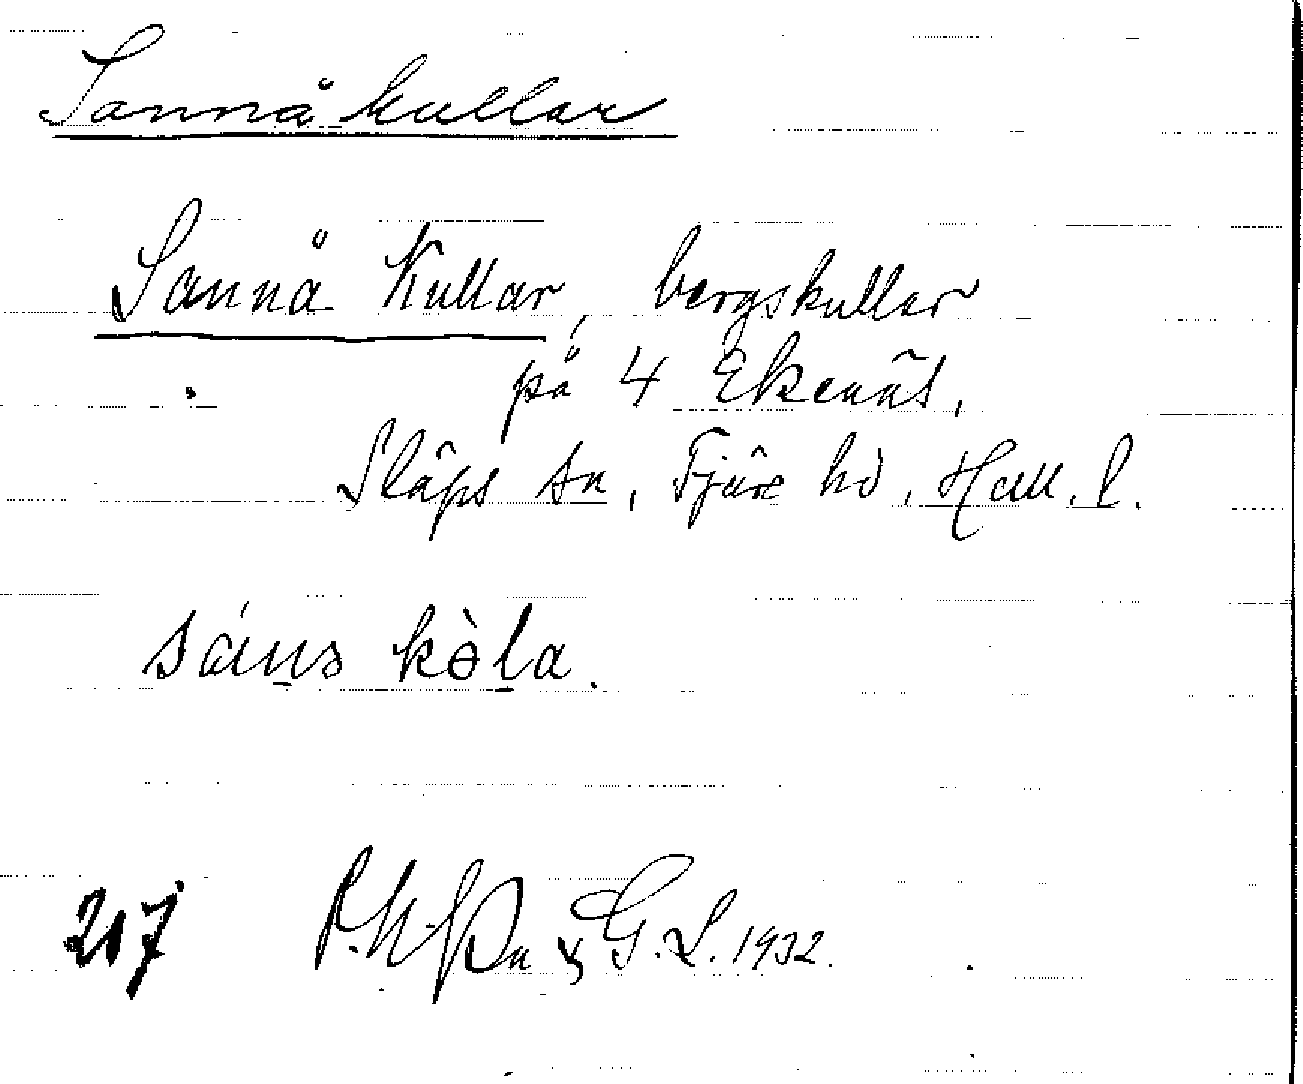 Sannåkullar
Sannå Kullar, bergskullar
på 4 Ekenäs,
Släps sn, Fjäre hd, Hall. l.
kòla.
217 & G. L. 1932.